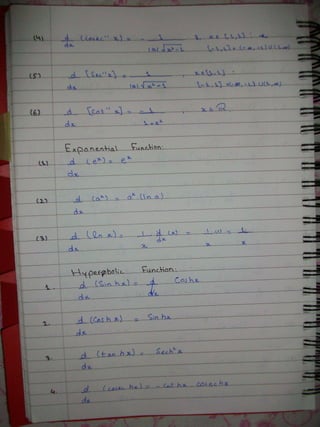 (4) d/dx (cosec⁻¹x) = - 1/|x|√x²-1
(5) d/dx [Sec⁻¹x] = 1/|x|√x²-1
(6) d/dx [Cot⁻¹x] = -1/1+x², x ∈ ℝ.
Exponential Function:
(1) d/dx (eˣ) = eˣ
(2) d/dx (aˣ) = aˣ (ln a)
(3) d/dx (ln x) = 1/x d/dx (x) = 1/x (1) = 1/x
Hyperbolic Function:
1. d/dx (Sin hx) = Cos hx
2. d/dx (Cos h x) = Sin hx
3. d/dx (tan hx) = Sech²x
4. d/dx (cosec hx) = - Cot hx cosec hx